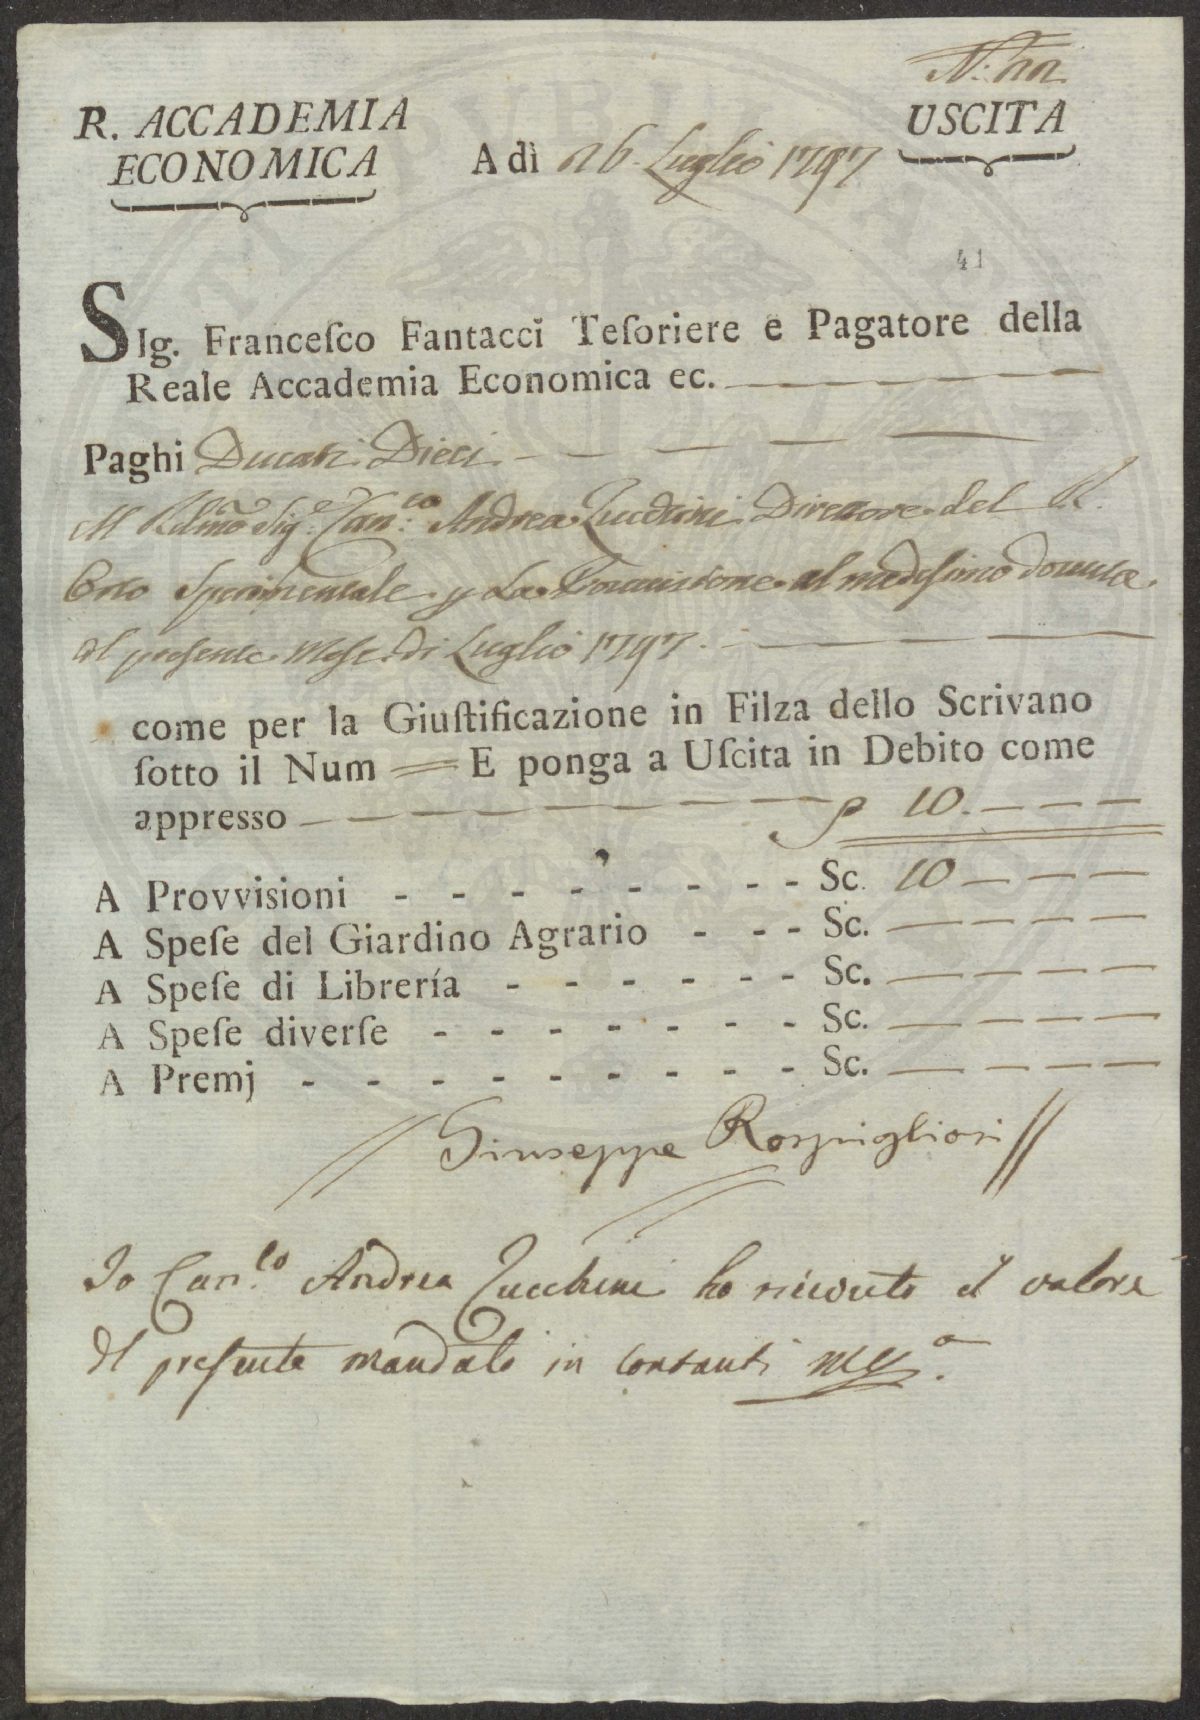 N.° 22
R. ACCADEMIA
ECONOMICA
USCITA
A dì 26. Luglio 1797
41
SIg. Franceſco Fantacci Teſoriere e Pagatore della
Reale Accademia Economica ec.
Paghi Ducati Dieci
Al Rd.mo Sig.e Can.co Andrea Zucchini Direttore del R.
Orto Sperimentale p La Provvisione al medesimo dovuta
pel presente Mese di Luglio 1797.
come per la Giuſtificazione in Filza dello Scrivano
ſotto il Num = E ponga a Uſcita in Debito come
appresso 10.
A Provvisioni - - - - - - - - - Sc. 10
A Speſe del Giardino Agrario - - - Sc.
A Speſe di Librería - - - - - - Sc.
A Speſe diverſe - - - - - - - Sc.
A Premj - - - - - - - - - Sc.
Giuseppe Rospigliosi
Io Can.co Andrea Zucchini ho ricevuto il valore
del presente mandato in contanti